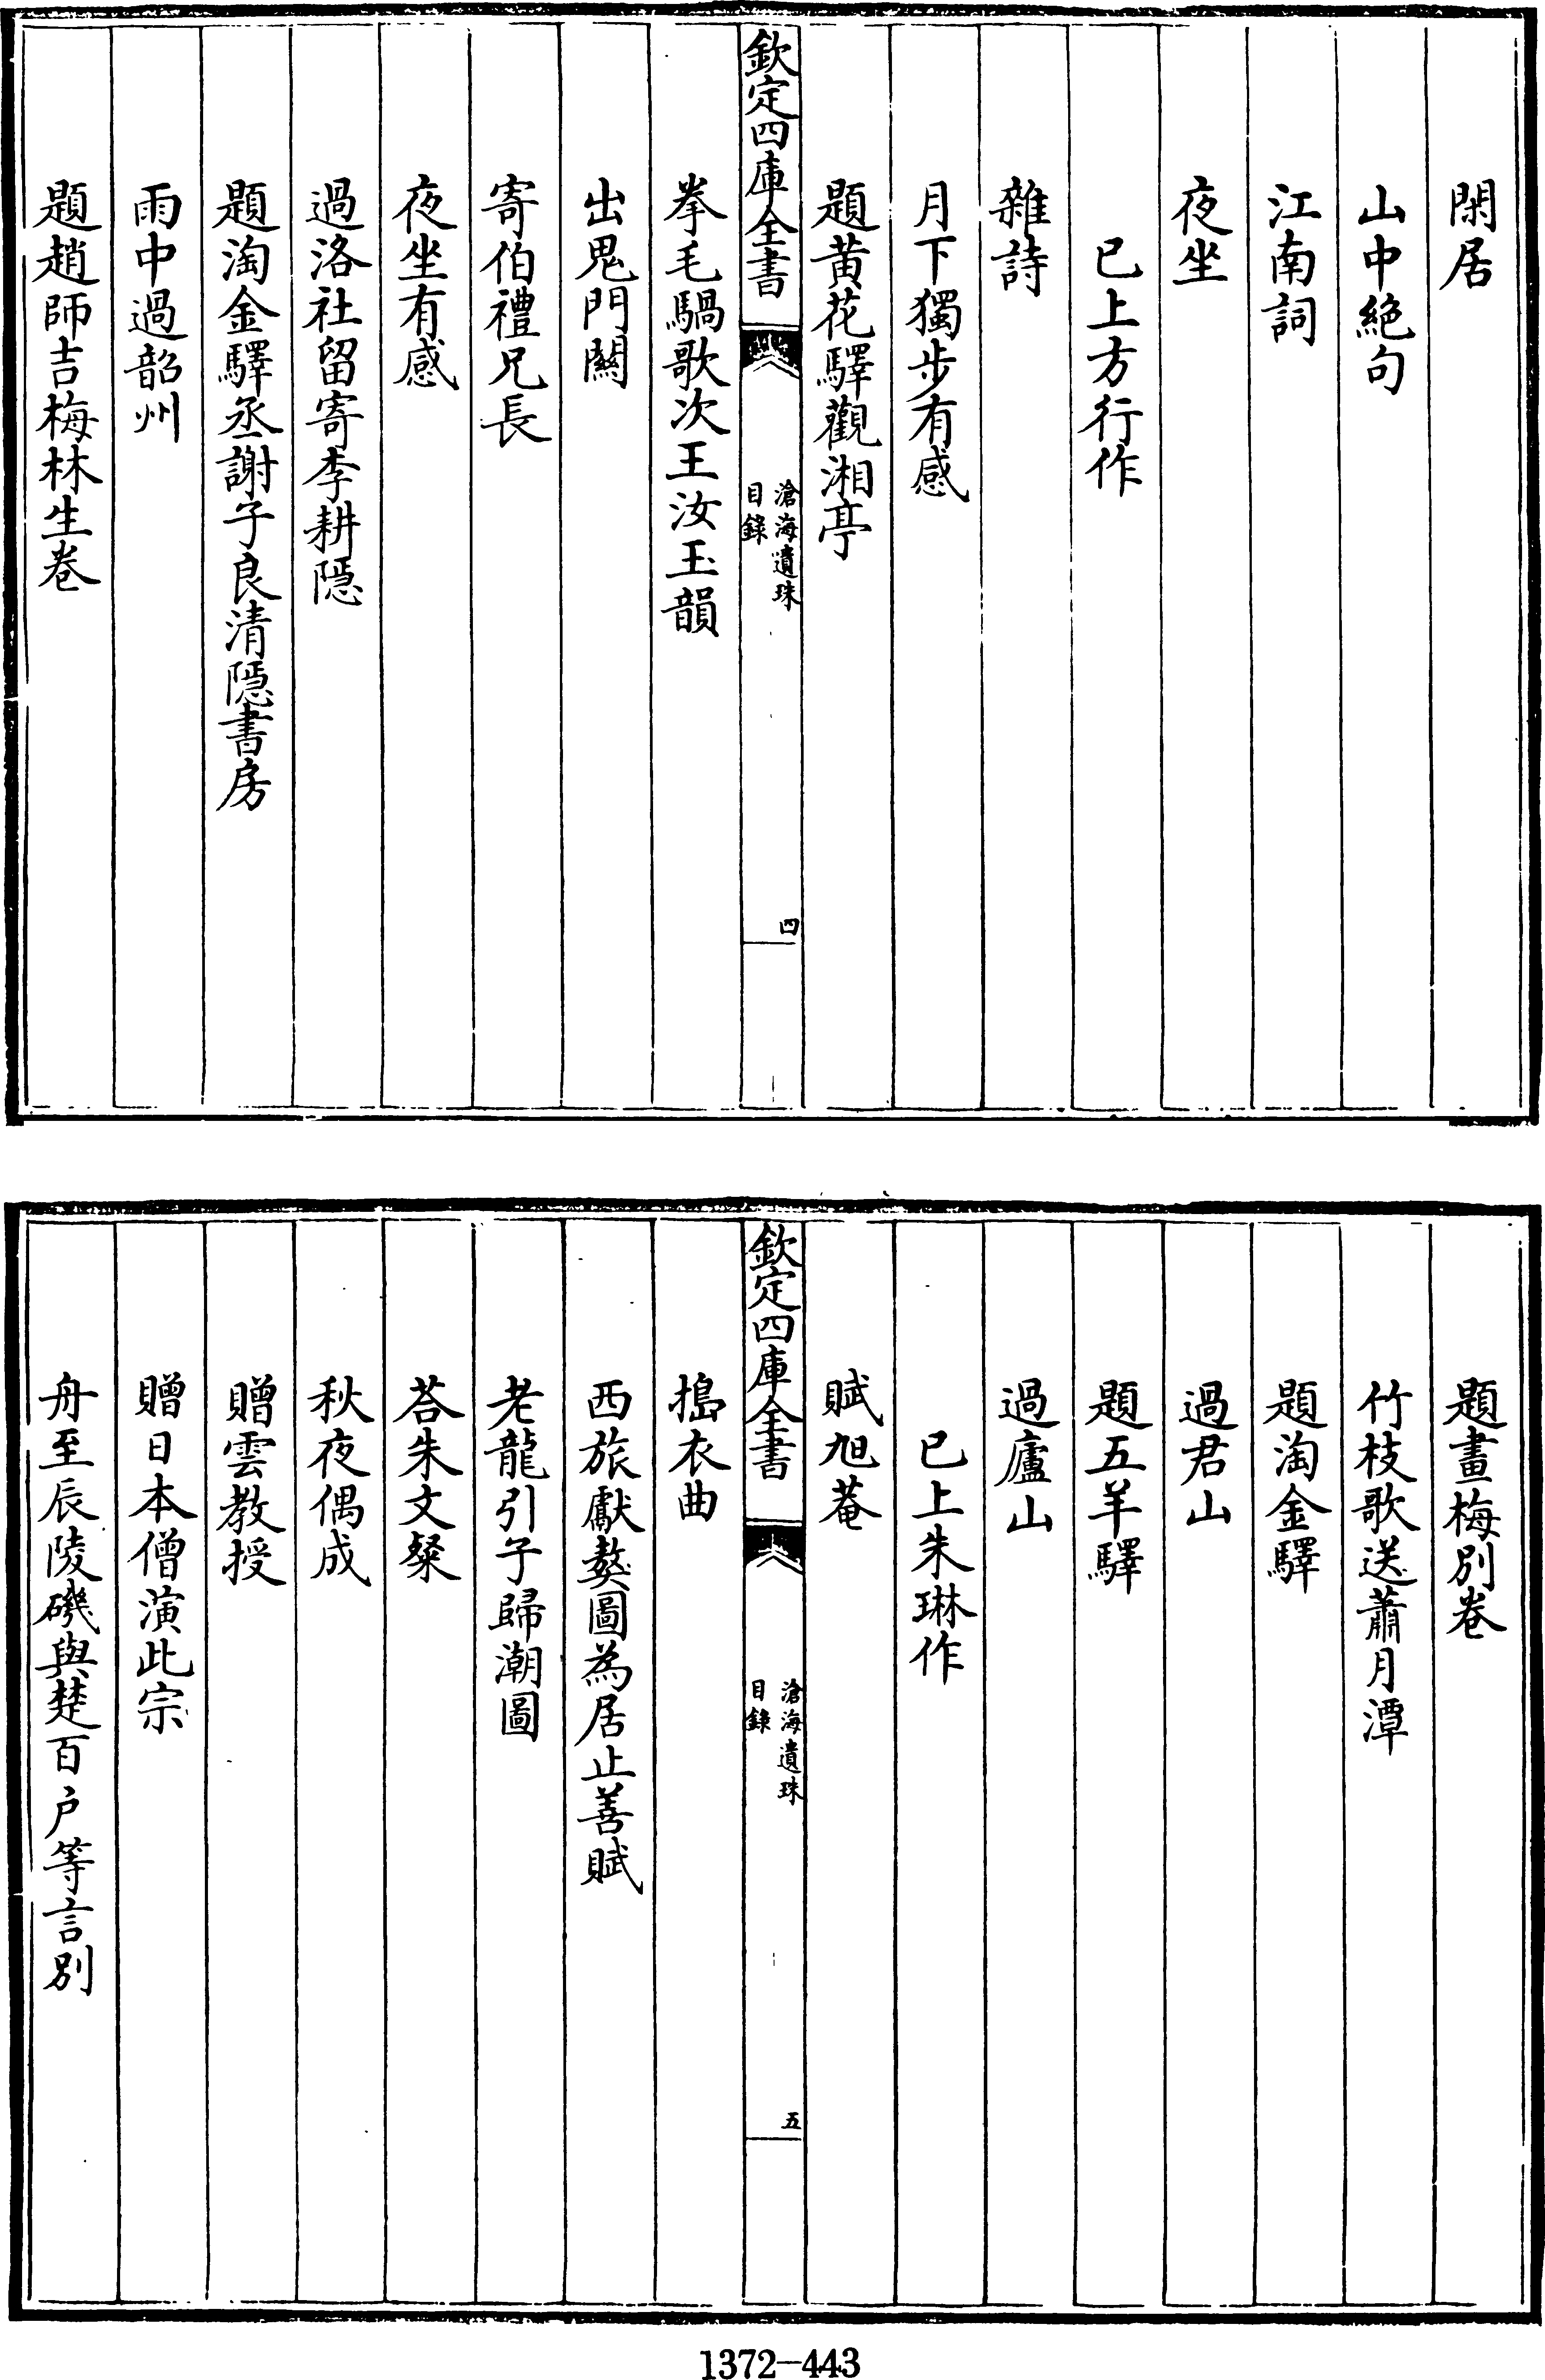 閑居
山中絶句
江南詞
夜坐
已上方行作
雜詩
月下獨步有感
題黄花驛觀湘亭
欽定四庫全書
滄海遺珠
目錄
四
拳毛騧歌次王汝玉韻
出鬼門關
寄伯禮兄長
夜坐有感
過洛社留寄李耕隱
題淘金驛丞謝子良清隱書房
雨中過韶州
題趙師吉梅林生卷
題畫梅別卷
竹枝歌送蕭月潭
題淘金驛
過君山
題五羊驛
過廬山
已上朱琳作
賦旭菴
欽定四庫全書
滄海遺珠
目錄
五
搗衣曲
西旅獻獒圖為居止善賦
老龍引子歸潮圖
荅朱文粲
秋夜偶成
贈雲教授
贈日本僧演此宗
舟至辰陵磯與楚百户等言別
1372-443